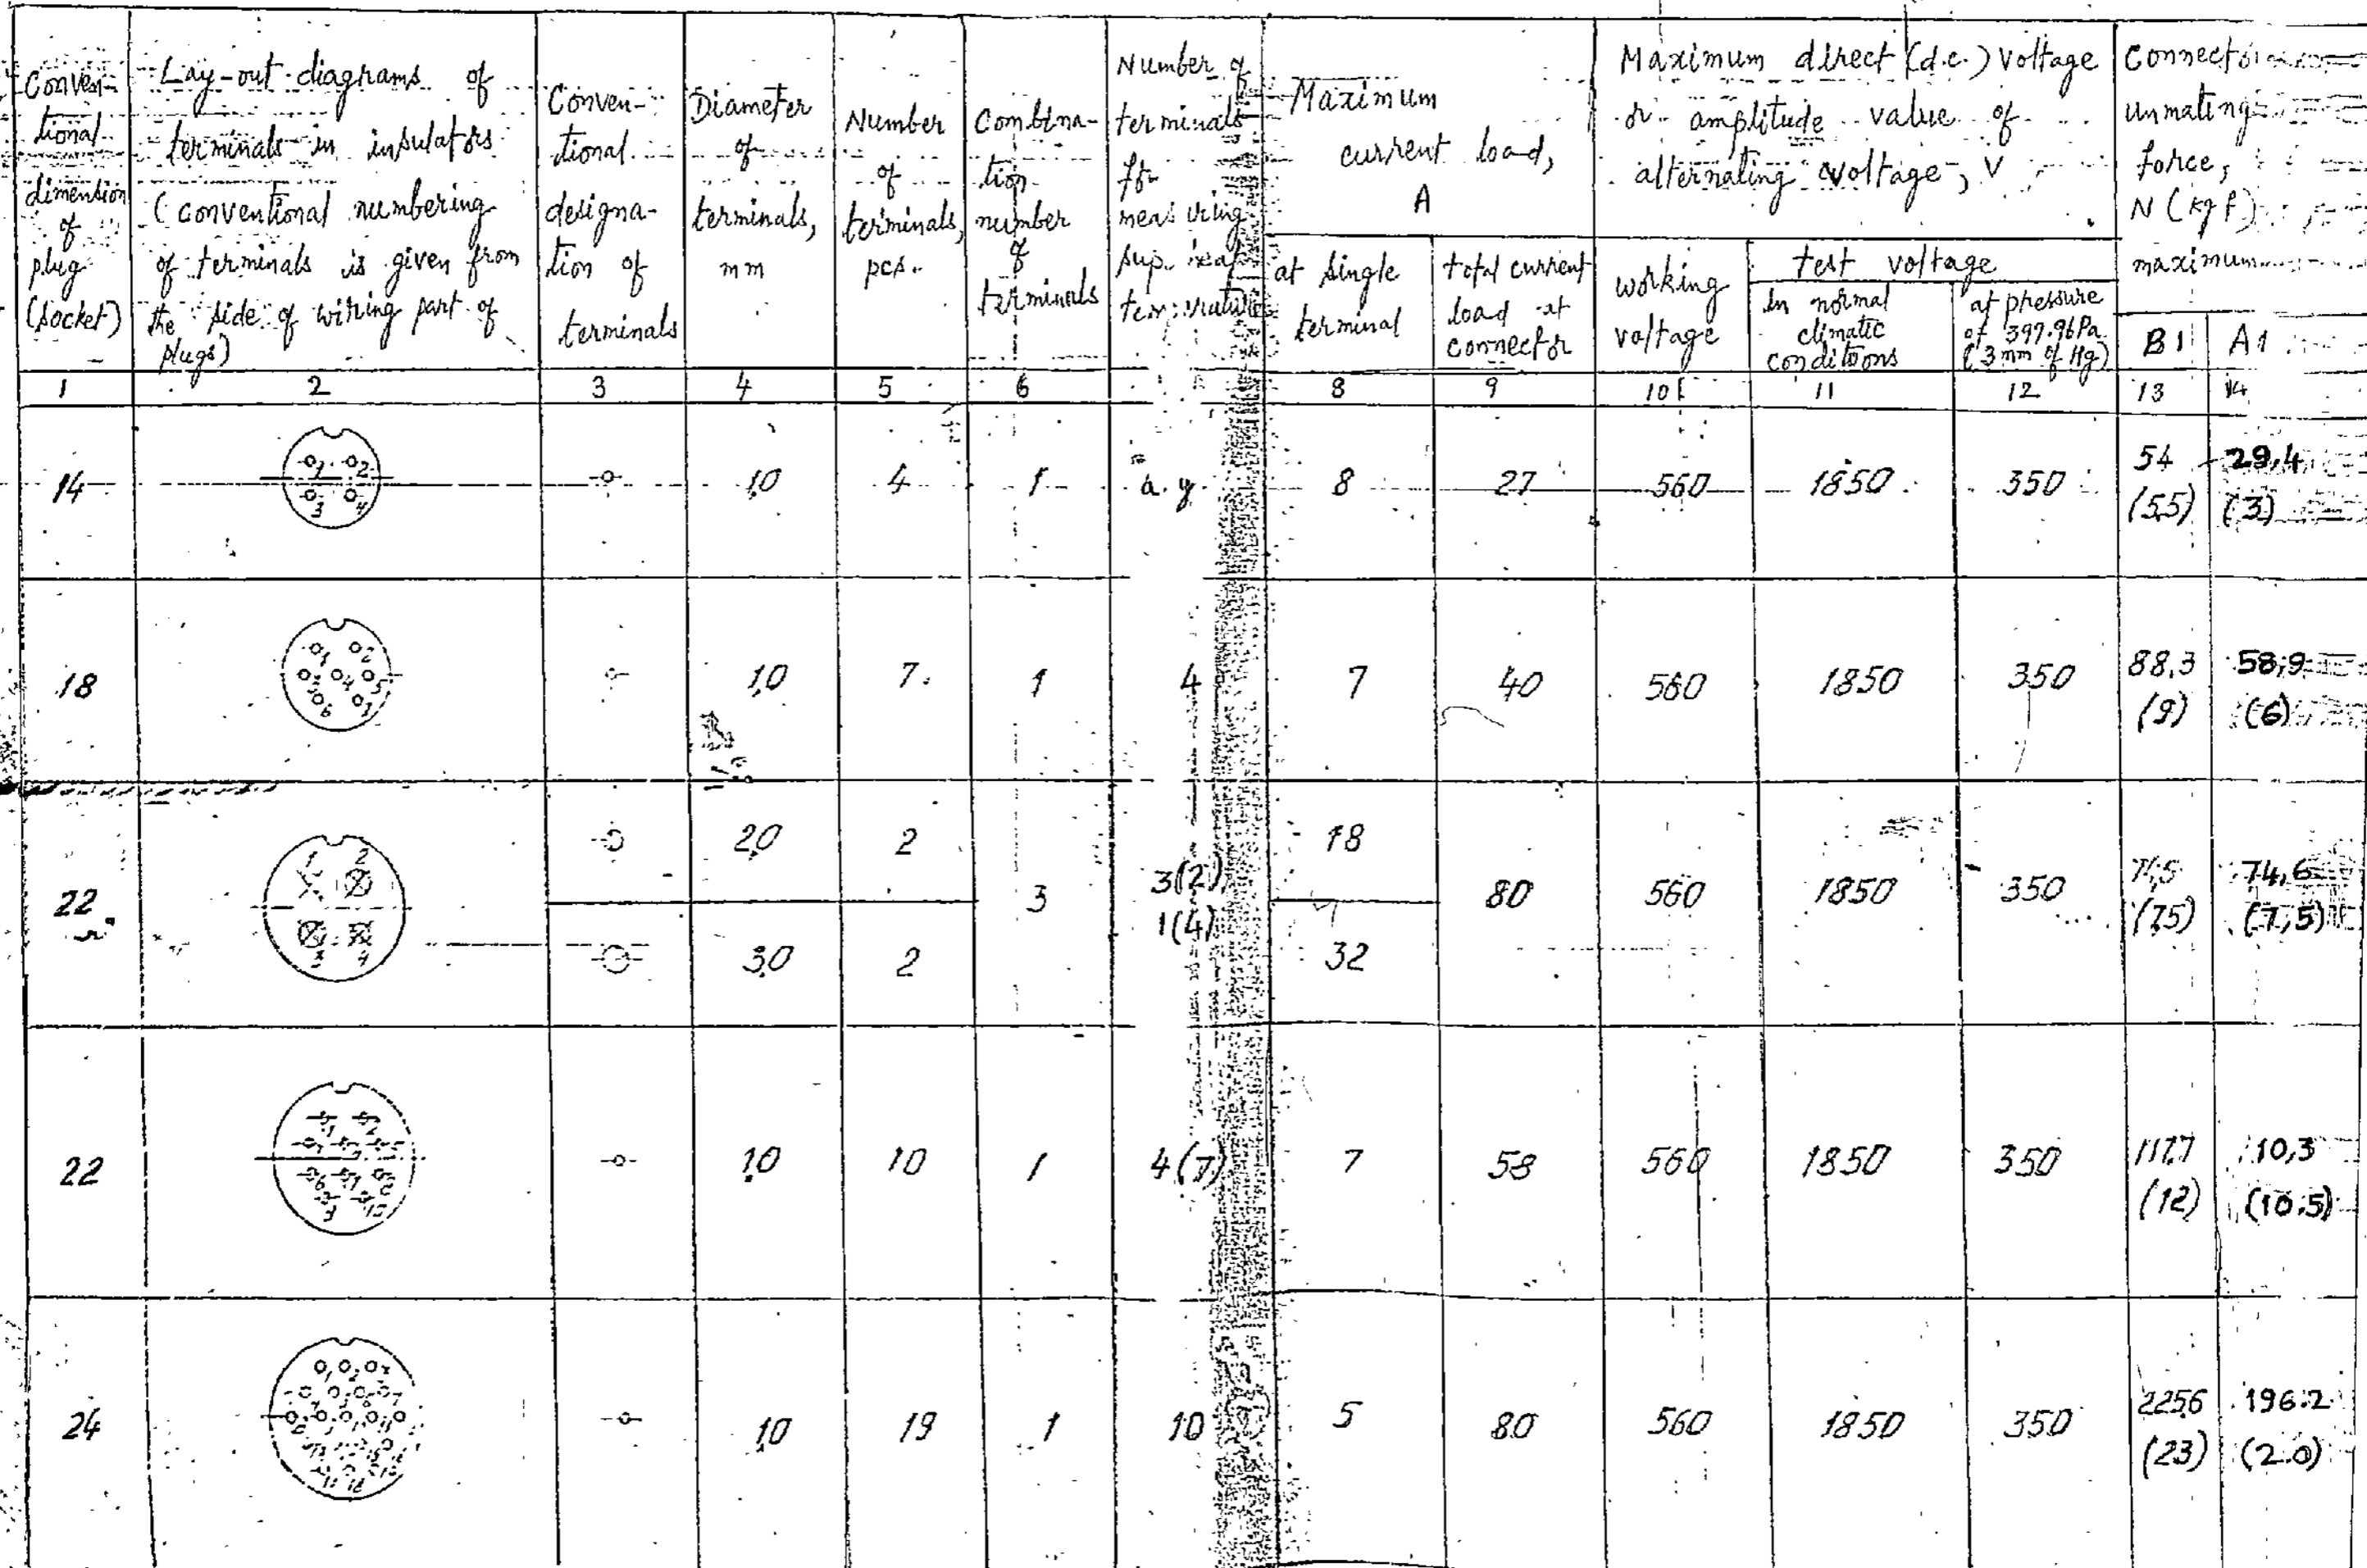 Conven-
tional
dimention
of
plug
(socket)
Lay-out diagrams of
terminals in insulators
(conventional numbering
of terminals is given from
the side of wiring part of
plugs)
Conven-
tional
designa-
tion of
terminals
Diameter
of
terminals,
mm
Number
of
terminals,
pcs.
Combina-
tion
number
of
terminals
Number of
terminals
for
measuring
Maximum
current load,
A
at single
terminal
total current
load at
connector
Maximum direct (d.c.) voltage
or amplitude value of
alternating voltage, V
working
voltage
test voltage
in normal
climatic
conditions
at pressure
of 399.96 Pa
(3 mm of Hg)
Connector
unmating
force,
N (kgf)
maximum
B1 A1
1 2 3 4 5 6 8 9 10 11 12 13 14
14 1 2 3 4 1,0 4 1 8 27 560 1850 350 54 29,4
(5,5) (3)
18 1 2 3 4 5 6 7 1,0 7 1 4 7 40 560 1850 350 88,3 58,9
(9) (6)
22 1 2 3 4 2,0 2 3 3(2) 18 80 560 1850 350 74,6
1(4) (7,5) (7,5)
3,0 2 32
22 1,0 10 1 4(7) 7 58 560 1850 350 117,7 10,3
(12) (10.5)
24 1,0 19 1 10 5 80 560 1850 350 225,6 196.2
(23) (2.0)